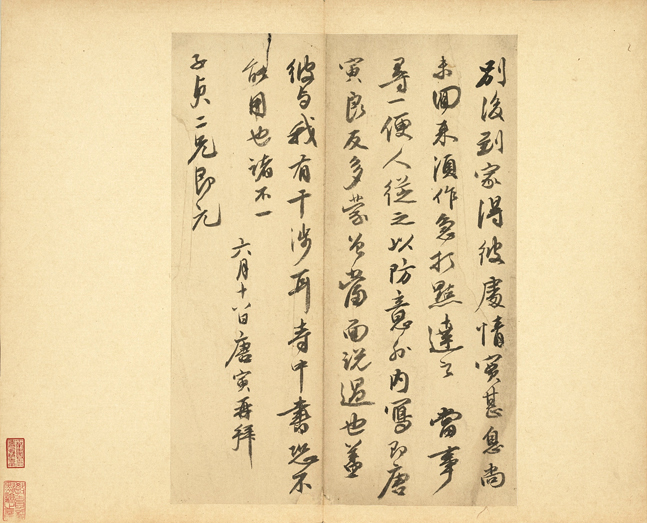 別後到家得彼處情實甚息尚
未回來須作急打點達之 當事
尋一便人從之以防意外內寫即唐
寅良友多蒙 當面說過也蓋
彼与我有干涉耳寺中書恐不
能用也諸不一
六月十八日唐寅再拜
子貞二兄即元